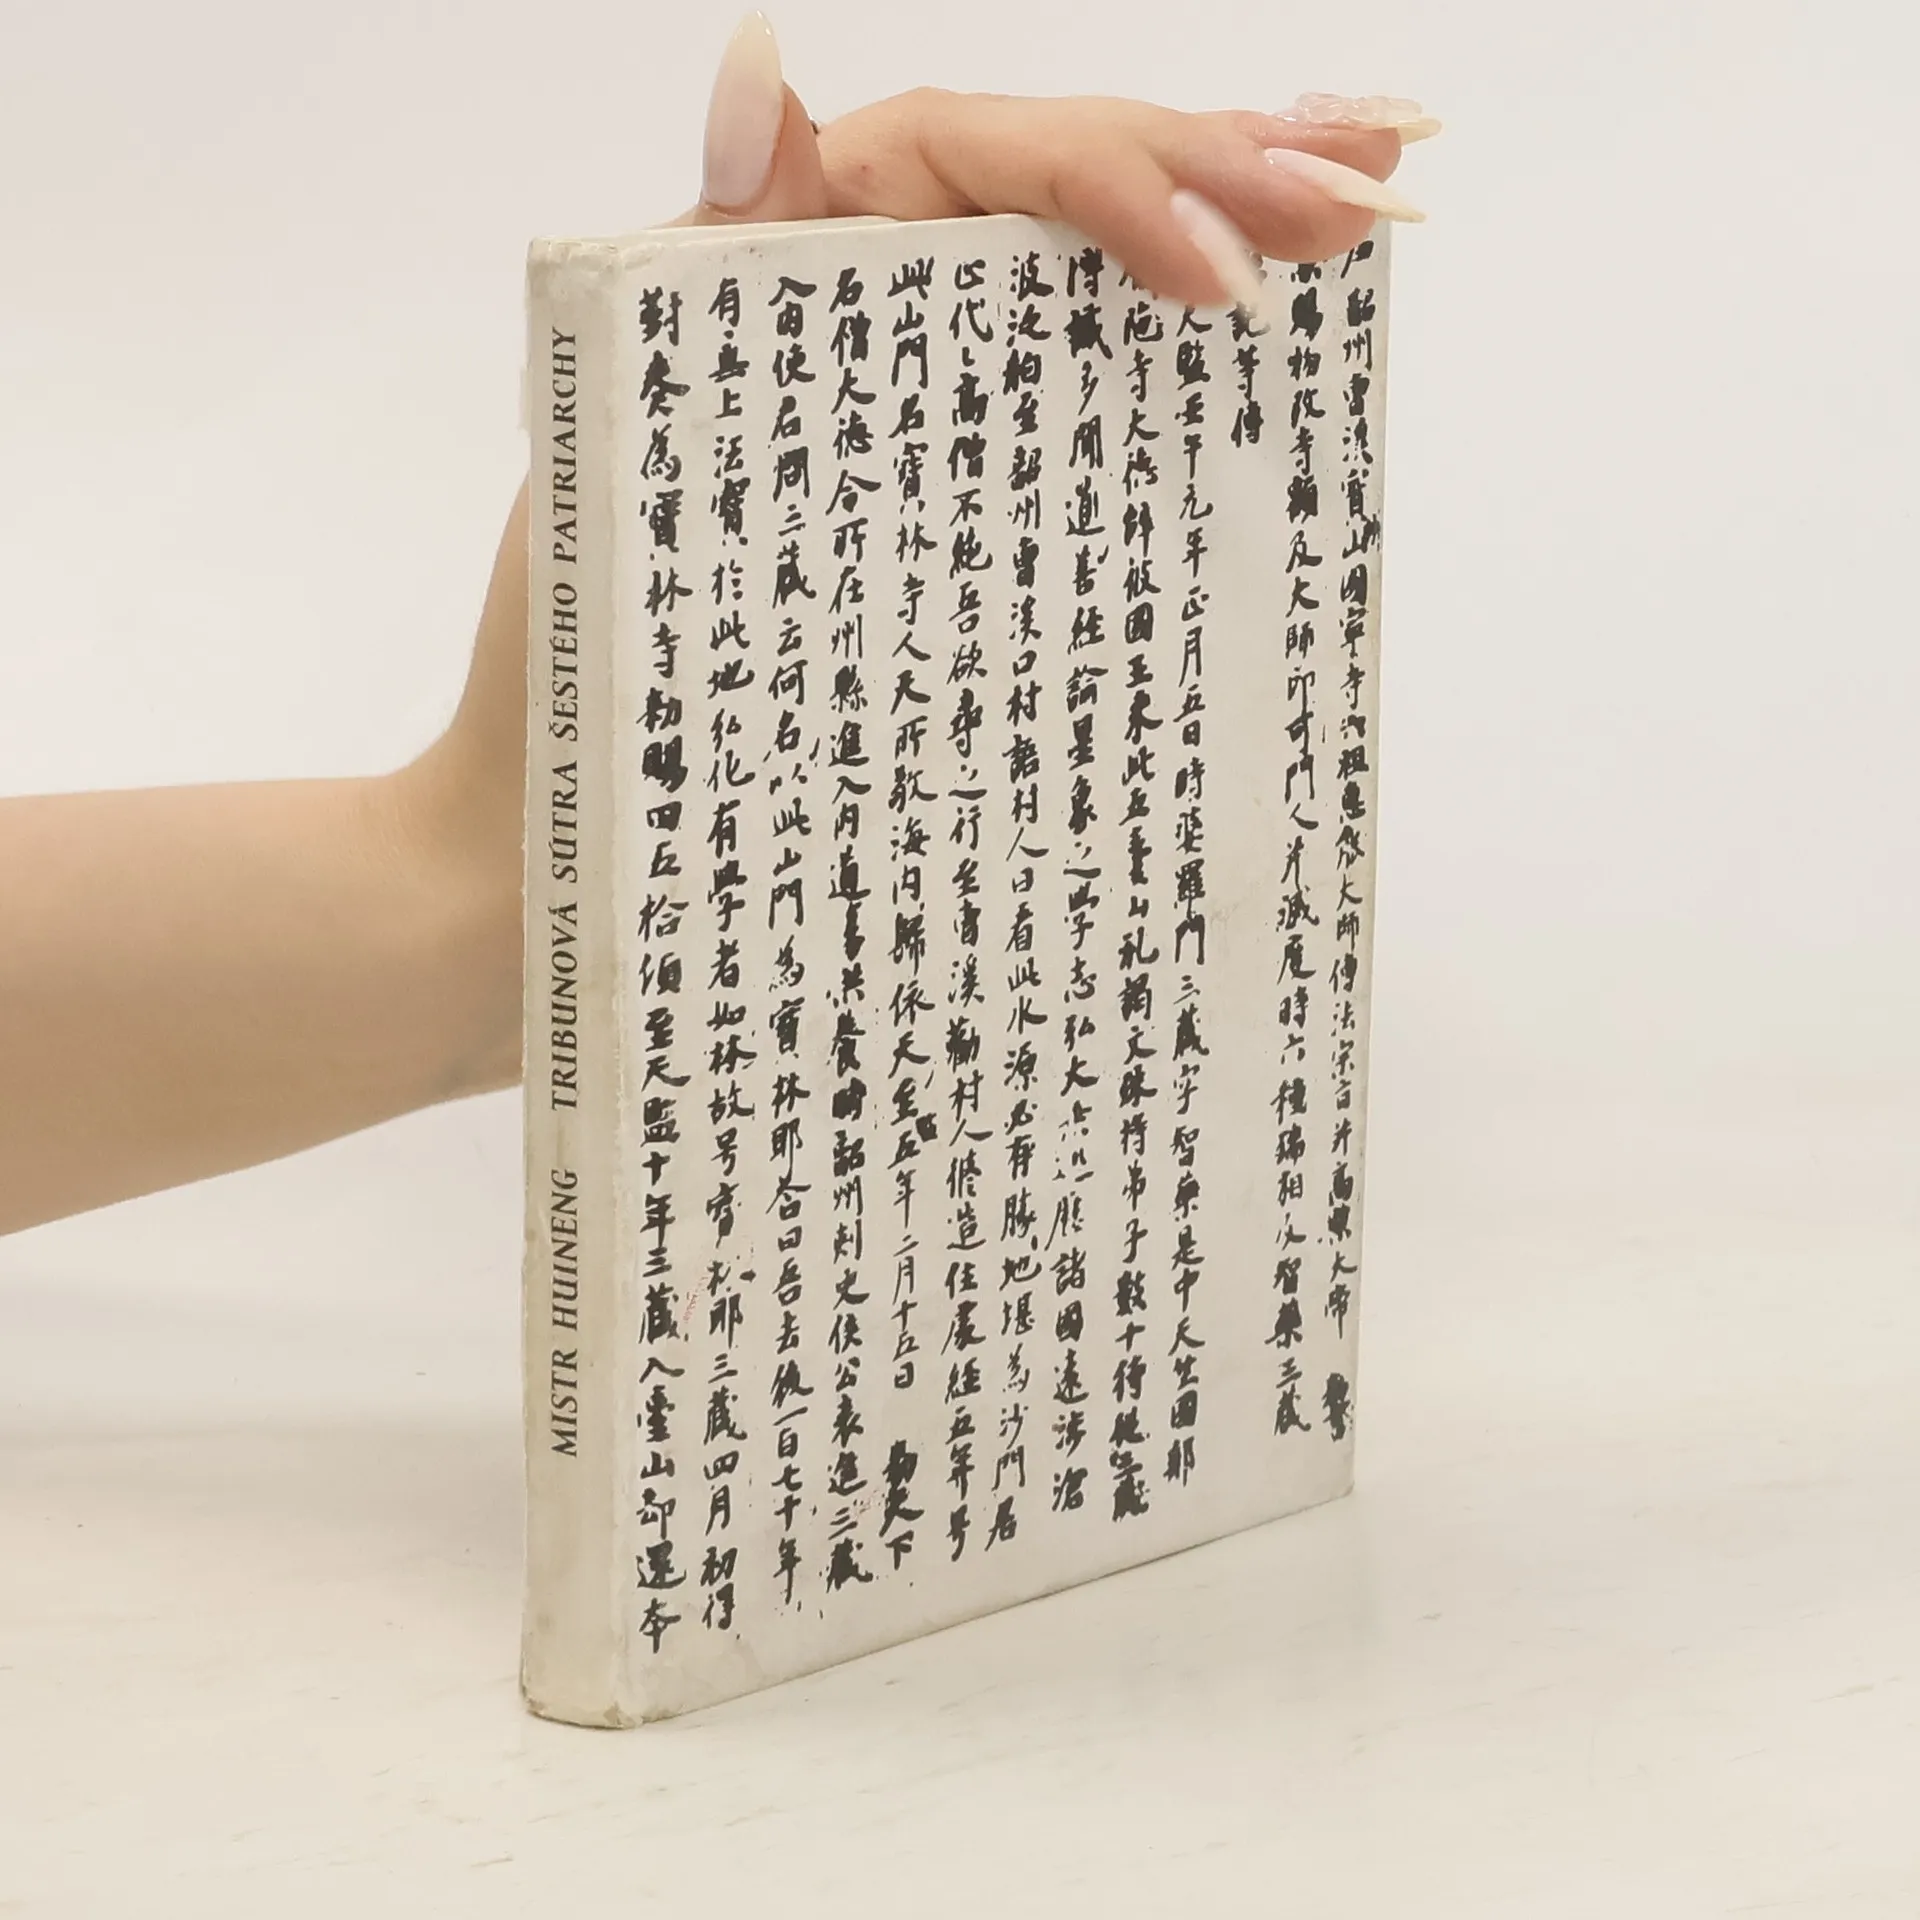 MISTR HUINENG TRIBUNOVÁ SÚTRA ŠESTÉHO PATRIARCHY
韶州曹溪寶山國寧寺六祖惠能大師傳法宗旨并高宗大帝
賜物改寺額及大師印可門人并滅度時六種瑞相及智藥三藏
記等傳
天監壬午元年正月五日時婆羅門三藏字智藥是中天竺國那
陀寺大德辞彼國王来此五臺山礼謁文殊将弟子數十侍從三藏
博識多聞通善經論星象之學志弘大歷諸國遠涉滄
波汎舶至韶州曹溪口村語村人曰看此水源必有勝地堪為沙門居
止代〻高僧不絶吾欲尋之行至曹溪勸村人修造住處經五年号
此山門名寶林寺人天所敬海内歸依天至五年二月十五日勅天下
名僧大德令所在州縣進入内道場供養時韶州刺史侯公表進三藏
入内使君問三藏云何名以此山門為寶林耶答曰吾去後一百七十年
有無上法寶於此地弘化有學者如林故号寶林耶三藏四月初得
對奏為寶林寺勅賜田五拾頃至天監十年三藏入臺山却還本